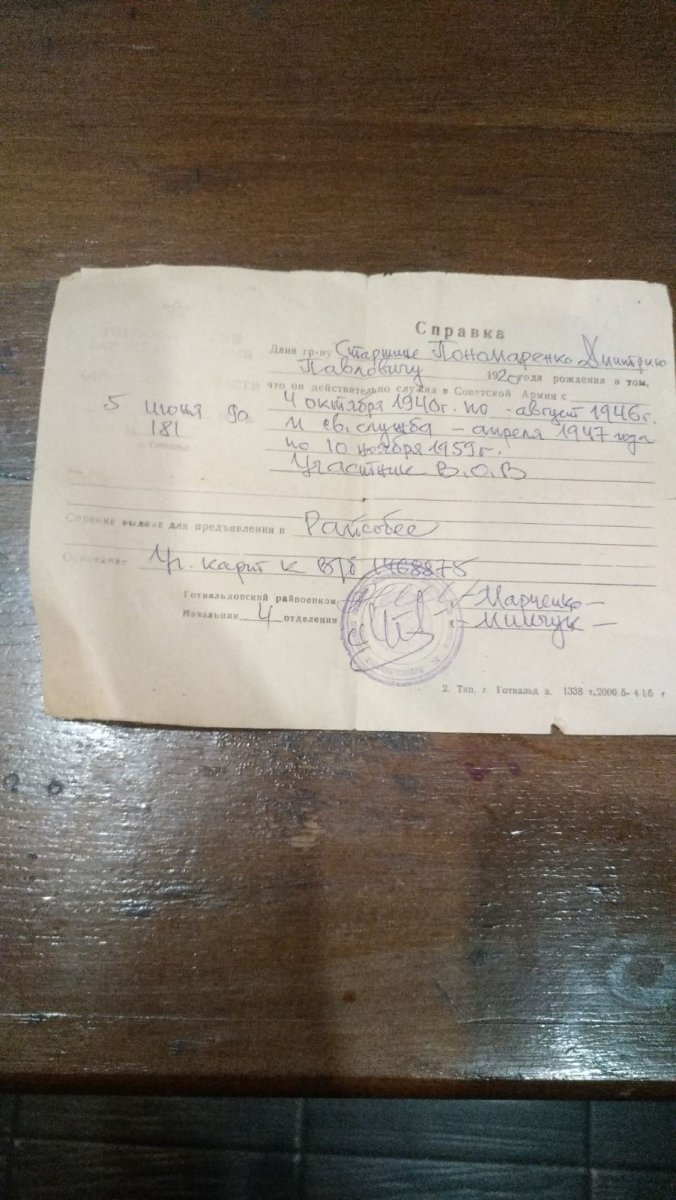 Справка
Дана гр-ну Старшине Пономаренко Дмитрию
Павловичу 1920 года рождения в том,
что он действительно служил в Советской Армии с
4 октября 1940г. по август 1946г.
5 июня 90
181
и св. служба - апреля 1947 года
по 10 ноября 1959г.
Участник В.О.В
Справка выдана для предъявления в Райсобес
Основание Уч. карт к В/б
Готвальдовский райвоенком /- Марченко -
Начальник 4 отделения - Минчук -
2. Тип. г. Готвальд з. 1338 т. 2000 5-4-86 г